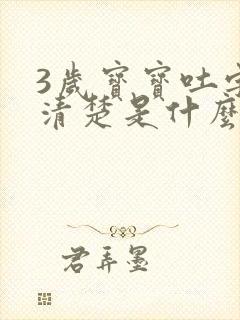 3歲寶寶吐字
清楚是什麼
君弄墨